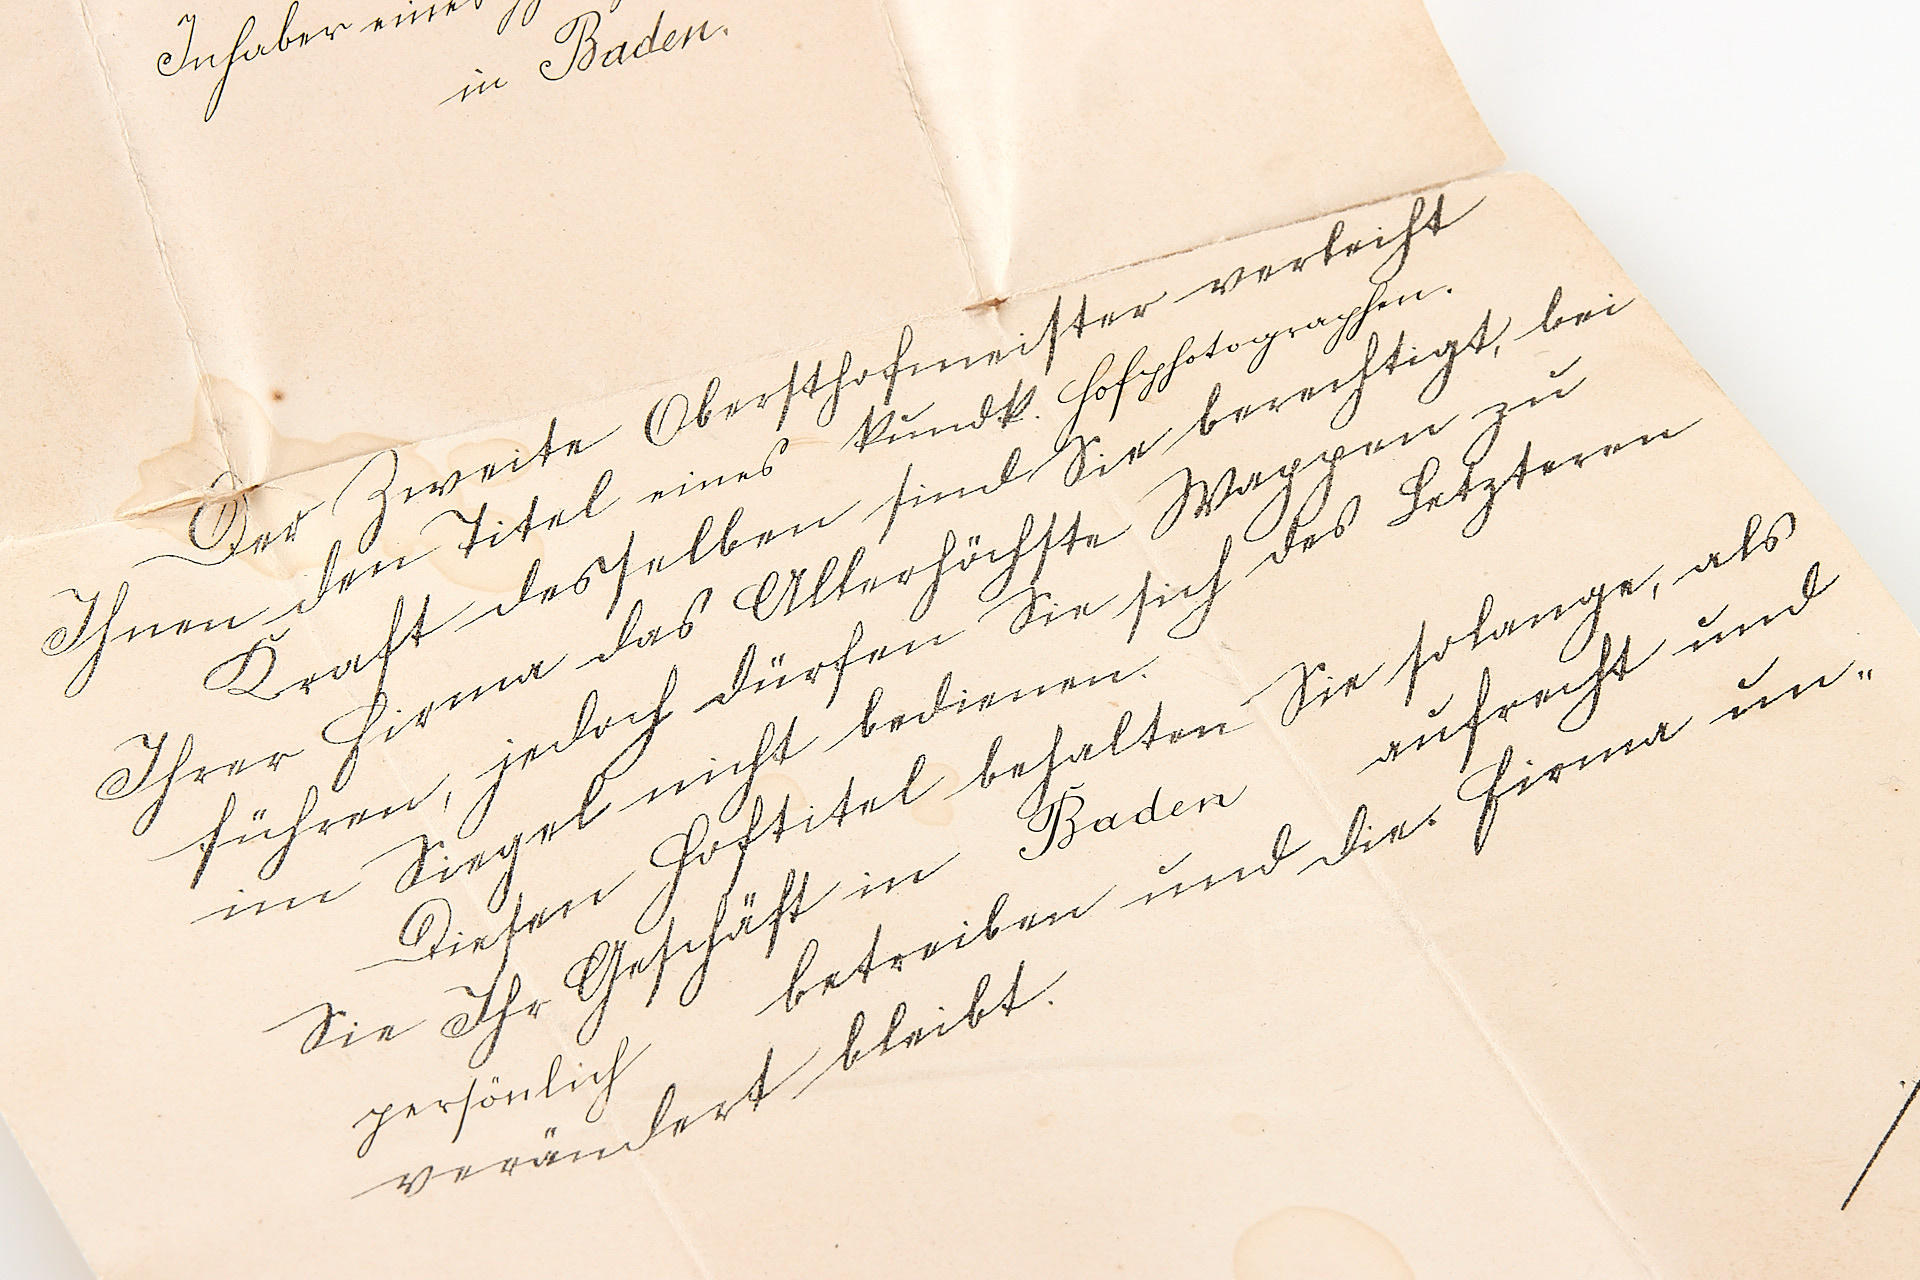 Inhaber eines
in Baden.
Der Zweite Obersthofmeister verleiht
Ihnen den Titel eines kundk. Hofphotographen.
Kraft desselben sind Sie berechtigt, bei
Ihrer Firma das Allerhöchste Wappen zu
führen, jedoch dürfen Sie sich des Letzteren
im Siegel nicht bedienen.
Diesen Hoftitel behalten Sie solange, als
Sie Ihr Geschäft in Baden aufrecht und
persönlich betreiben und die Firma un-
verändert bleibt.